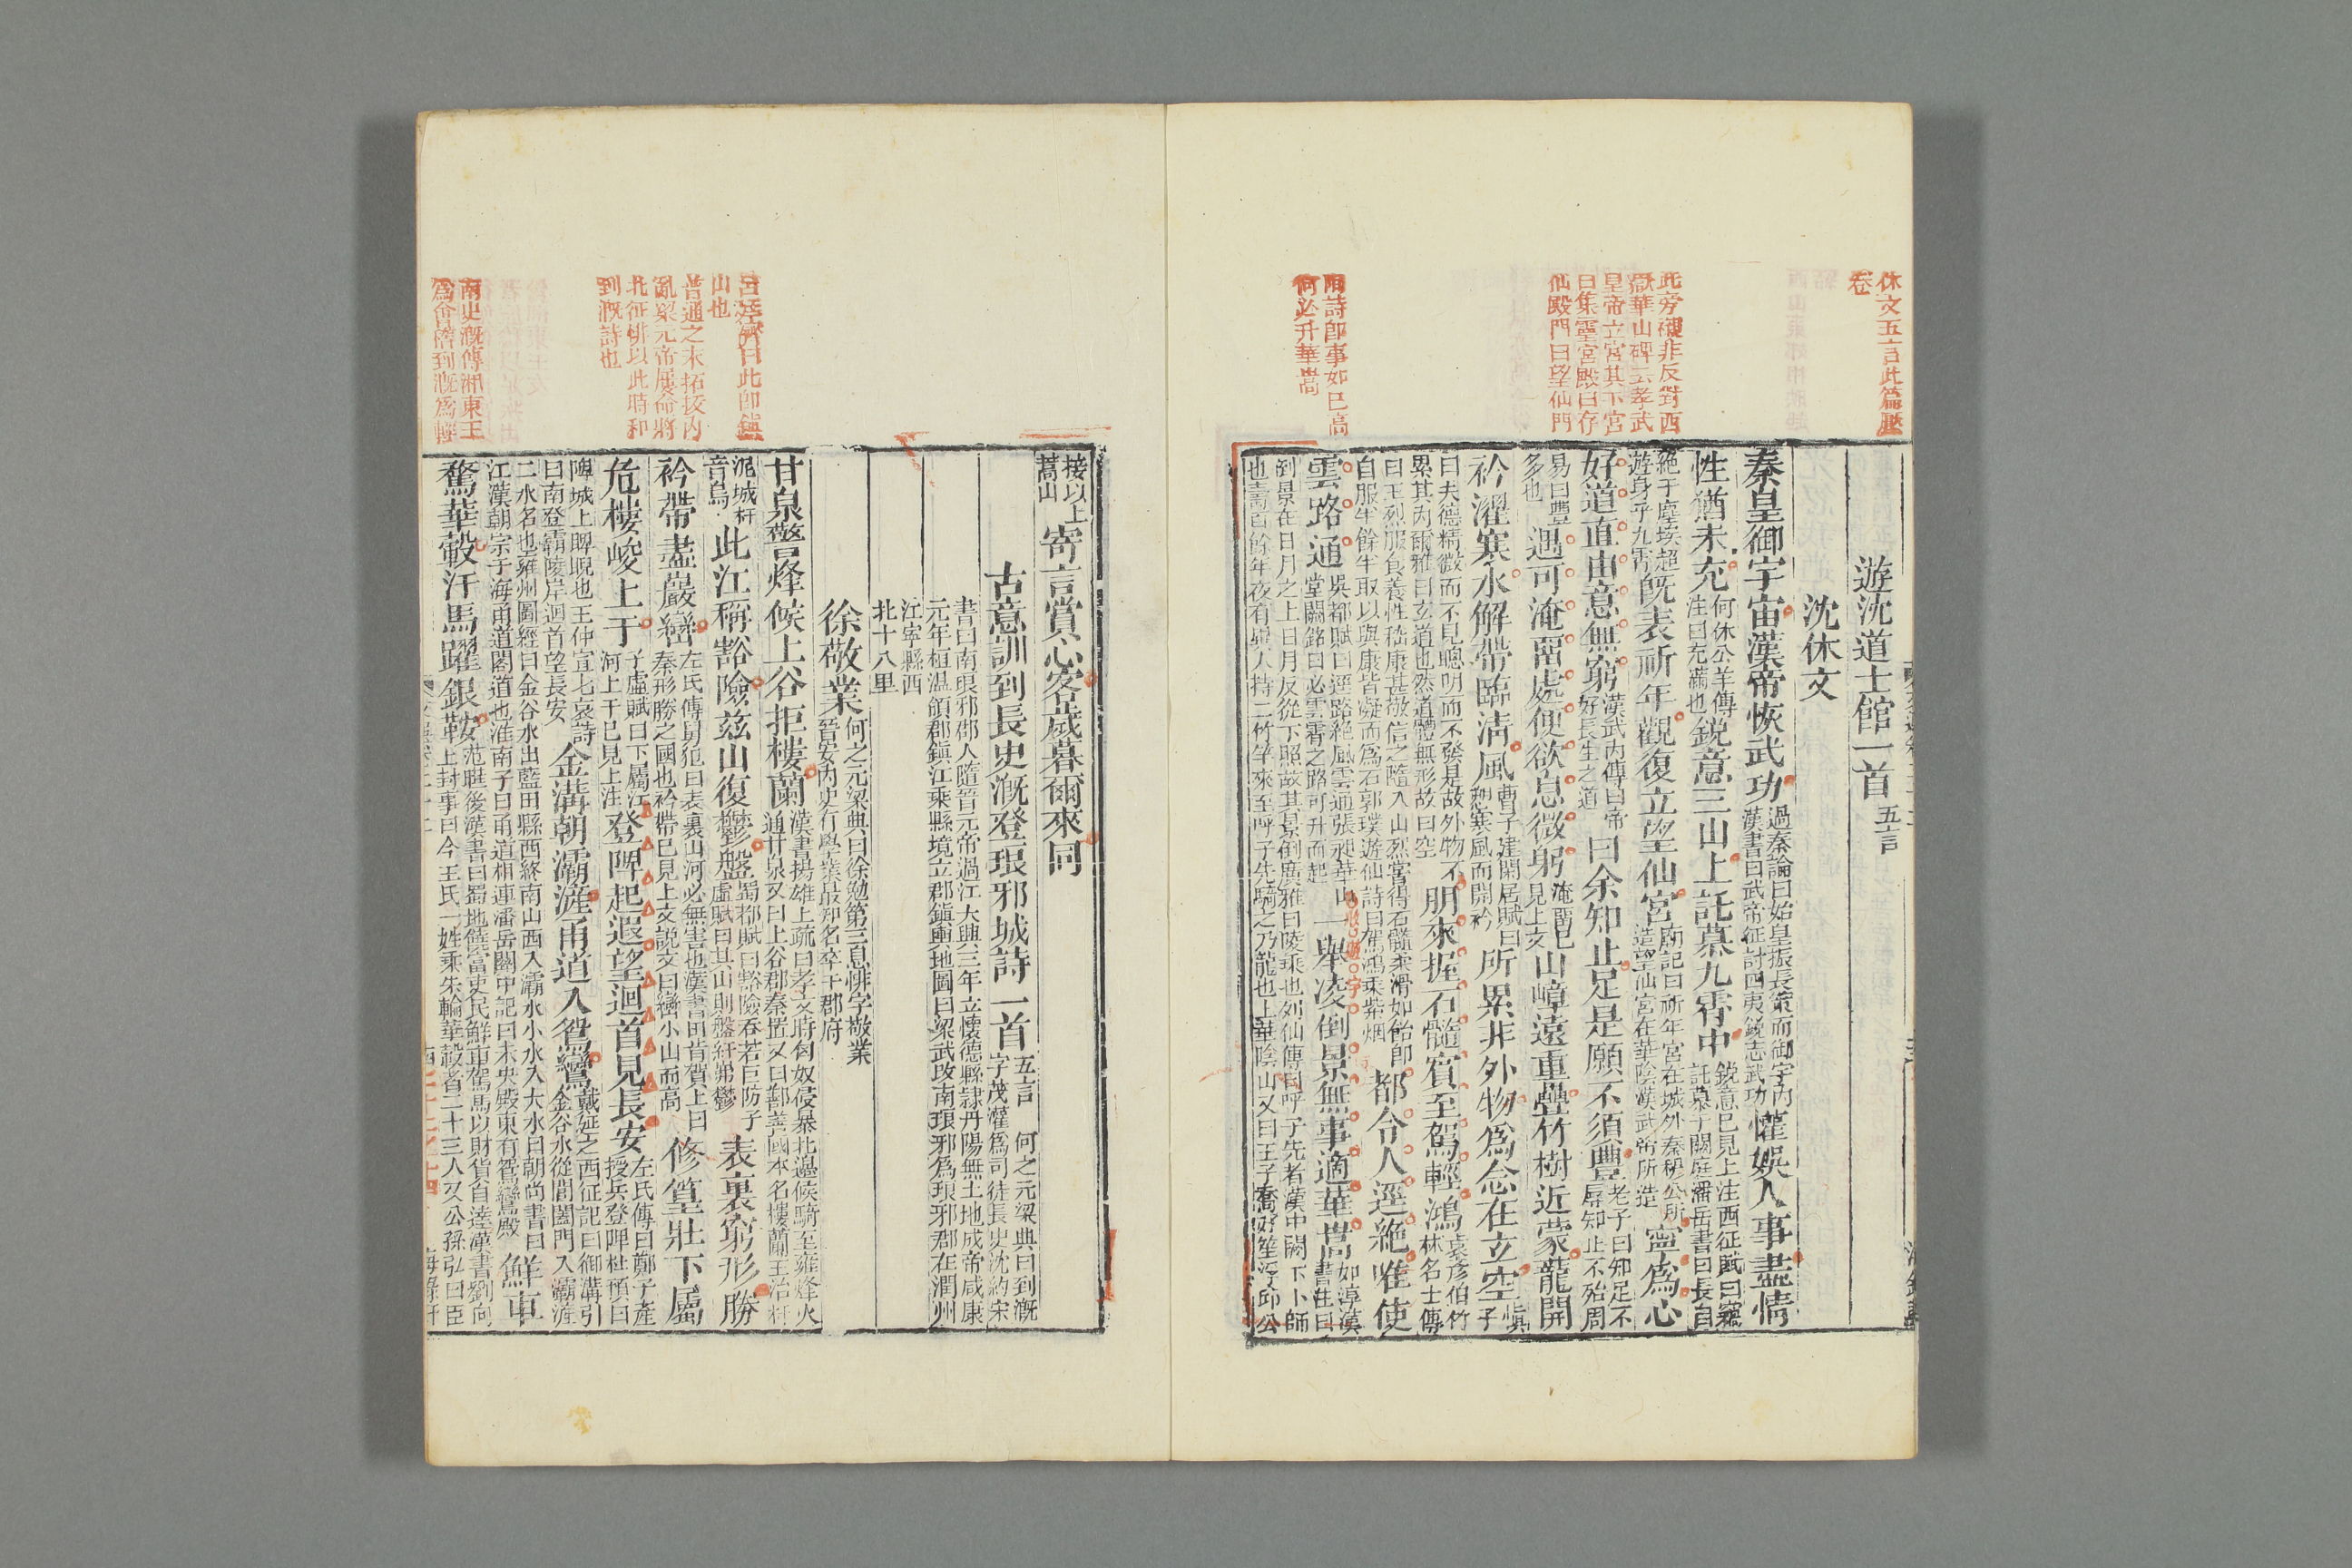 休文五言此篇壓
卷
此旁襯非反對西
嶽華山碑云孝武
皇帝立宮其下宮
曰集靈宮殿曰存
仙殿門曰望仙門
用詩卽事如已高
何必升華嵩
遊沈道士館一首五言
沈休文
秦皇御宇宙漢帝恢武功過秦論曰始皇振長策而御宇內漢書曰武帝征討四夷銳志武功懽娛人事盡情
性猶未充何休公羊傳注曰充滿也銳意三山上託慕九霄中銳意已見上注西征賦曰竊託慕于闕庭潘岳書曰長自
絕于塵埃超遊身乎九霄旣表祈年觀復立望仙宮廟記曰祈年宮在城外秦穆公所造望仙宮在華陰漢武帝所造寧爲心
好道直由意無窮漢武內傳曰帝好長生之道曰余知止足是願不須豐老子曰知足不辱知止不殆周
易曰豐多也遇可淹留處便欲息微躬淹留已見上文山嶂遠重疊竹樹近蒙蘢開
衿濯寒水解帶臨淸風曹子建閑居賦曰愬寒風而開衿所累非外物爲念在立空愼子
曰夫德精微而不見聰明而不發是故外物不累其內爾雅曰玄道也然道體無形故曰空朋來握石髓賓至駕輕鴻袁彥伯竹林名士傳
曰王烈服食養性嵇康甚敬信之隨入山烈嘗得石髓柔滑如飴卽自服半餘半取以與康皆凝而爲石郭璞遊仙詩曰駕鴻乘紫烟都令人逕絕唯使
雲路通吳都賦曰逕路絕風雲通張昶華山堂闕銘曰必雲霄之路可升而起一舉凌倒景無事適華嵩如淳漢書注曰
到景在日月之上日月反從下照故其景倒廣雅曰陵乘也列仙傳曰呼子先者漢中闕下卜師也壽百餘年夜有異人持二竹竿來至呼子先騎之乃龍也上華陰山又曰王子喬好笙浮邱公
接以上嵩山寄言賞心客歲暮爾來同
古意訓到長史漑登琅邪城詩一首五言 何之元梁典曰到漑字茂灌爲司徒長史沈約宋
書曰南琅邪郡人隨晉元帝過江大興三年立懷德縣隸丹陽無土地成帝咸康元年桓溫領郡鎭江乘縣境立郡鎭輿地圖曰梁武改南琅邪爲琅邪郡在潤州
江寧縣西北十八里
徐敬業何之元梁典曰徐勉第三息悱字敬業晉安內史有學業最知名卒于郡府
甘泉警烽候上谷拒樓蘭漢書揚雄上疏曰孝文時匈奴侵暴北邊候騎至雍烽火通甘泉又曰上谷郡秦置又曰鄯善國本名樓蘭王治扜
泥城扜音烏此江稱豁險茲山復鬱盤蜀都賦曰豁險吞若巨防子虛賦曰其山則盤紆岪鬱表裏窮形勝
衿帶盡巖巒左氏傳舅犯曰表裏山河必無害也漢書田肯賀上曰秦形勝之國也衿帶已見上文說文曰巒小山而高修篁壯下屬
危樓峻上干子虛賦曰下屬江河上干已見上注登陴起遐望迴首見長安左氏傳曰鄭子產授兵登陴杜預曰
陴城上睥睨也王仲宣七哀詩曰南登霸陵岸迴首望長安金溝朝灞滻甬道入鴛鸞戴延之西征記曰御溝引金谷水從閶闔門入灞滻
二水名也雍州圖經曰金谷水出藍田縣西終南山西入灞水小水入大水曰朝尚書曰江漢朝宗于海甬道閣道也淮南子曰甬道相連潘岳關中記曰未央殿東有鴛鸞殿鮮車
騖華轂汗馬躍銀鞍范曄後漢書曰蜀地饒富吏民鮮車駕馬以財貨自達漢書劉向上封事曰今王氏一姓乘朱輪華轂者二十三人又公孫弘曰臣
呂延濟曰此卽鎭
山也
普通之末拓拔內
亂梁元帝屢命將
北征悱以此時和
到漑詩也
南史漑傳湘東王
爲會稽到漑爲輕